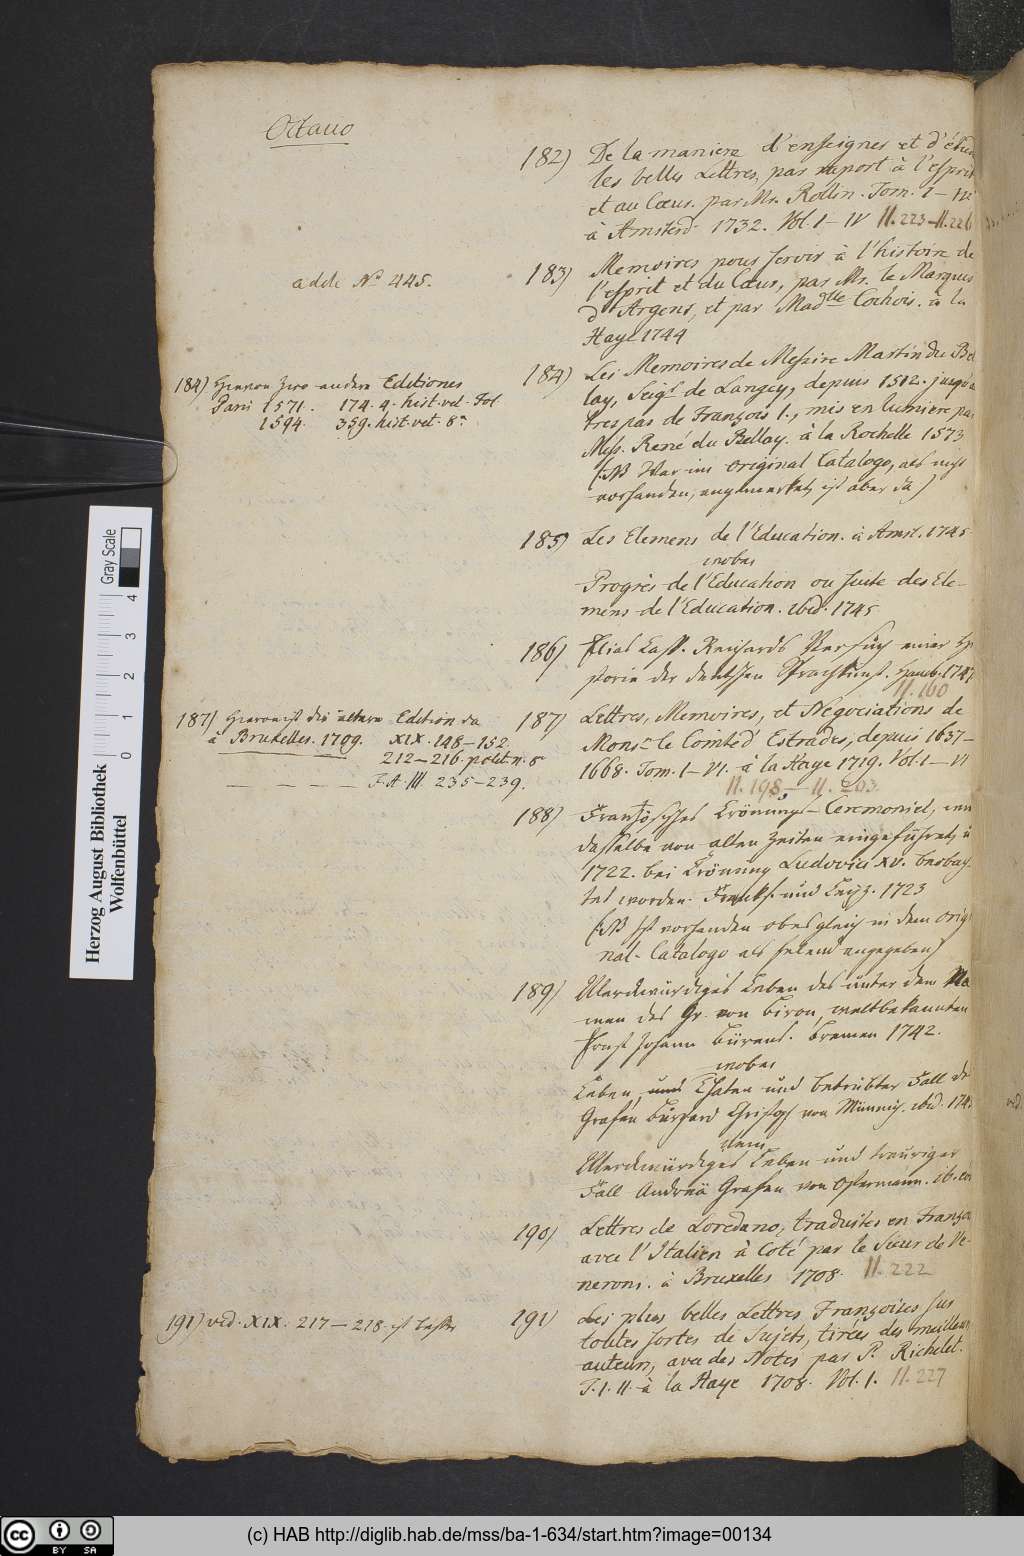 Octavo
182) De la maniere d'enseigner et d'étud
les belles Lettres, par raport à l'esprit
et au Cœur. par Mr. Rollin. Tom. I–IV
à Amsterd. 1732. Vol. I–IV II.223–II.226
adde No 445.
183) Memoires pour servir à l'histoire de
l'esprit et du Cœur, par Mr. le Marquis
d'Argens, et par Madlle Cochois. à la
Haye 1744
184) Hiervon zwo andere Editiones
Paris 1571. 174. 4. hist. vet. Fol.
1594. 359. hist. vet. 8o
184) Les Memoires de Messire Martin du Bel
lay, Seigr. de Langey, depuis 1512. jusqu'a
trespas de François I., mis en lumiere pa
Mess. René du Bellay. à la Rochelle 1573
(NB War im original Catalogo, als nicht
vorhanden, angemerket, ist aber da)
185) Les Elemens de l'Education. à Amst. 1745
wobei
Progrès de l'Education ou suite des Ele-
mens de l'Education. ibid. 1745
186) Elias Casp. Reichards Versuch einer Hi
storie der deutschen Sprachkunst. Hamb. 1747
II.160
187) Hievon ist die ältere Edition da
à Bruxelles. 1709. XIX. 148–152.
212–216 polit. n. 5
– – – – F. A III. 235–239.
187) Lettres, Memoires, et Negociations de
Monsr. le Comte d'Estrades, depuis 1637–
1668. Tom. I–VI. à la Haye 1719. Vol. I–VI
II.198–II.203
188) Französisches Crönungs-Ceremoniel, wie
dasselbe von alten Zeiten eingeführet, u
1722. bei Crönung Ludovici XV. beobach
tet worden. Franckf. und Leipz. 1723
(NB Ist vorhanden ob es gleich in dem origi
nal-Catalogo als fehlend angegeben)
189) Merckwürdiges Leben des unter dem Na
men des Gr. von Biron, weltbekannten
Ernst Johann Bürens. Bremen 1742.
wobei
Leben, Thaten und betrübter Fall de
Grafen Burchard Christoph von Münnich. ibid. 174
item
Merckwürdiges Leben und trauriger
Fall Andreä Grafen von Ostermann. ib. eod
190) Lettres de Loredano, traduites en Franço
avec l'Italien à Coté par le Sieur de Ve-
neroni. à Bruxelles 1708. II.222
191) vid. XIX. 217–218. ist besser
191) Les plus belles Lettres Françoises sur
toutes sortes de Sujets, tirées des meilleurs
auteurs, avec des Notes par P. Richelet.
T. I. II. à la Haye 1708. Vol. I. II.227
Herzog August Bibliothek
Wolfenbüttel
Gray Scale
0 1 2 3 4
BY SA
(c) HAB http://diglib.hab.de/mss/ba-1-634/start.htm?image=00134